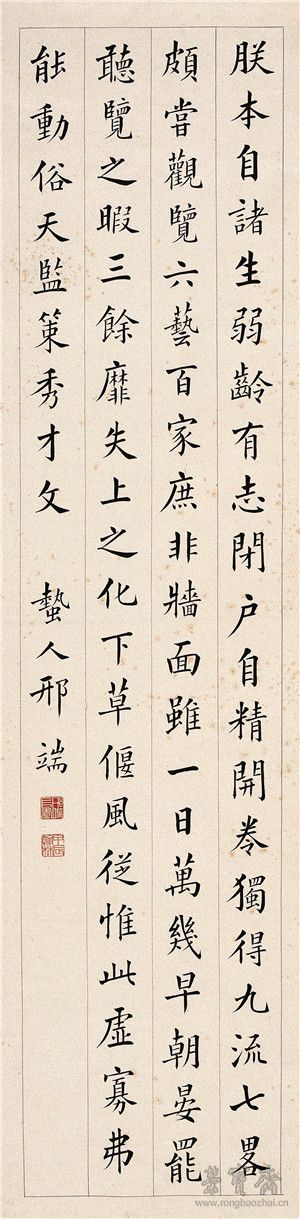 朕本自諸生弱齡有志閉户自精開卷獨得九流七畧
頗嘗觀覽六藝百家庶非牆面雖一日萬幾早朝晏罷
聽覽之暇三餘靡失上之化下草偃風從惟此虛寡弗
能動俗天監策秀才文
蟄人邢端
榮寶齋
www.rongbaozhai.cn